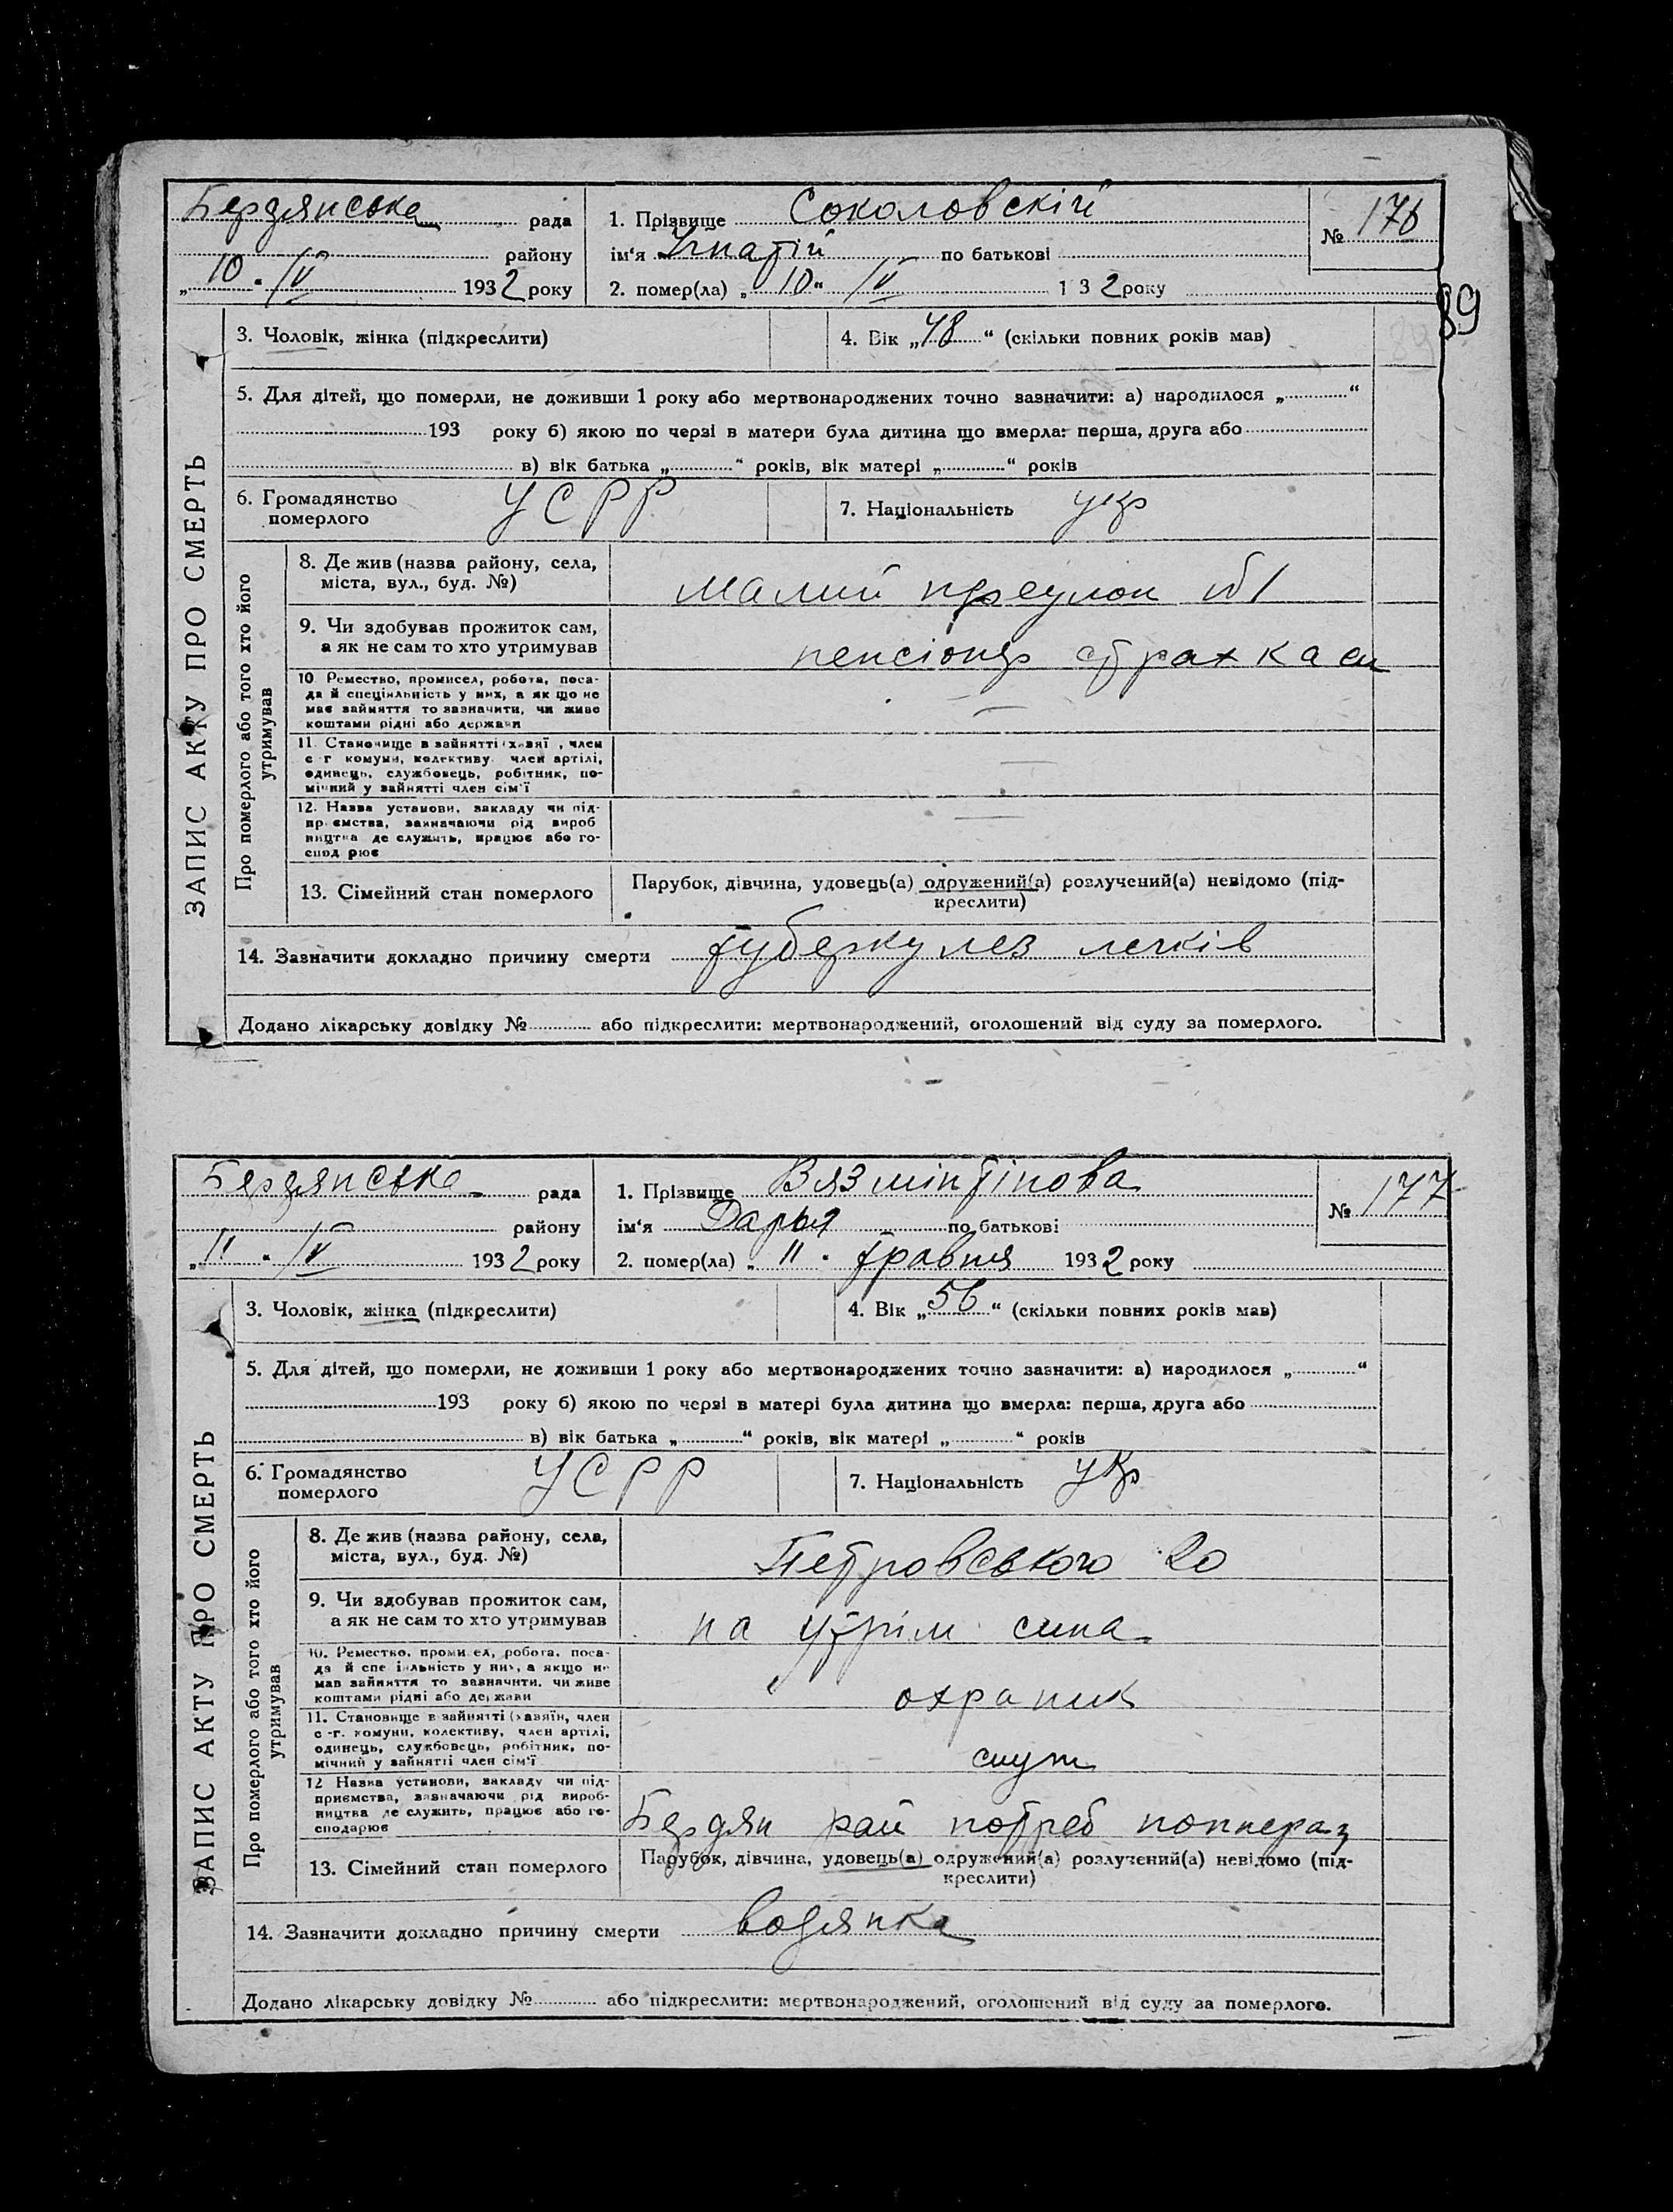 Бердянська рада
району
„10“ IV 1932 року
1. Прізвище Соколовскій
ім‘я Ігнатій по батькові
2. помер(ла) „10“ IV 1 3 2 року
№ 176
89
ЗАПИС АКТУ ПРО СМЕРТЬ
3. Чоловік, жінка (підкреслити)
4. Вік „48“ (скільки повних років мав)
5. Для дітей, що померли, не доживши 1 року або мертвонароджених точно зазначити: а) народилося „ “
193 року б) якою по черзі в матери була дитина що вмерла: перша, друга або
в) вік батька „ “ років, вік матері „ “ років
6. Громадянство
померлого
УСРР
7. Національність укр
Про померлого або того хто його
утримував
8. Де жив (назва району, села,
міста, вул., буд. №)
малий 1
9. Чи здобував прожиток сам,
а як не сам то хто утримував
пенсіонер страхкаси
10 Ремество, промисел, робота, поса-
да й спеціяльність у них, а як що не
має зайняття то зазначити, чи живе
коштами рідні або держави
—
11. Становище в зайнятті (хазяї , член
с г комуни, колективу член артілі,
одинець, службовець, робітник, по-
мічний у зайнятті член сім‘ї
—
12. Назва установи, закладу чи під-
пр ємства, зазначаючи рід вироб
ництва де служить, працює або го-
спод рює
—
13. Сімейний стан померлого
Парубок, дівчина, удовець(а) одружений(а) розлучений(а) невідомо (під-
креслити)
14. Зазначити докладно причину смерти туберкулез легків
Додано лікарську довідку № або підкреслити: мертвонароджений, оголошений від суду за померлого.
Бердянська рада
району
„11“ IV 1932 року
1. Прізвище Вязмінтінова
ім‘я Дарья по батькові
2. помер(ла) „11“ травня 1932 року
№ 177
ЗАПИС АКТУ ПРО СМЕРТЬ
3. Чоловік, жінка (підкреслити)
4. Вік „56“ (скільки повних років мав)
5. Для дітей, що померли, не доживши 1 року або мертвонароджених точно зазначити: а) народилося „ “
193 року б) якою по черзі в матері була дитина що вмерла: перша, друга або
в) вік батька „ “ років, вік матері „ “ років
6. Громадянство
померлого
УСРР
7. Національність укр
Про померлого або того хто його
утримував
8. Де жив (назва району, села,
міста, вул., буд. №)
Петровського 20
9. Чи здобував прожиток сам,
а як не сам то хто утримував
на утрім сина
10. Ремество, проми ел, робота, поса-
да й спе іяльність у них, а якщо не
мав зайняття то зазначити, чи живе
коштами рідні або держави
охраник
11. Становище в зайнятті (хазяїн, член
с -г. комуни, колективу, член артілі,
одинець, службовець, робітник, по-
мічний у зайнятті член сім‘ї
служ
12 Назва установи, закладу чи під-
приємства, зазначаючи рід вироб-
ництва де служить, працює або го-
сподарює
Бердян рай потреб
13. Сімейний стан померлого
Парубок, дівчина, удовець(а) одружений(а) розлучений(а) невідомо (під-
креслити)
14. Зазначити докладно причину смерти водянка
Додано лікарську довідку № або підкреслити: мертвонароджений, оголошений від суду за померлого.